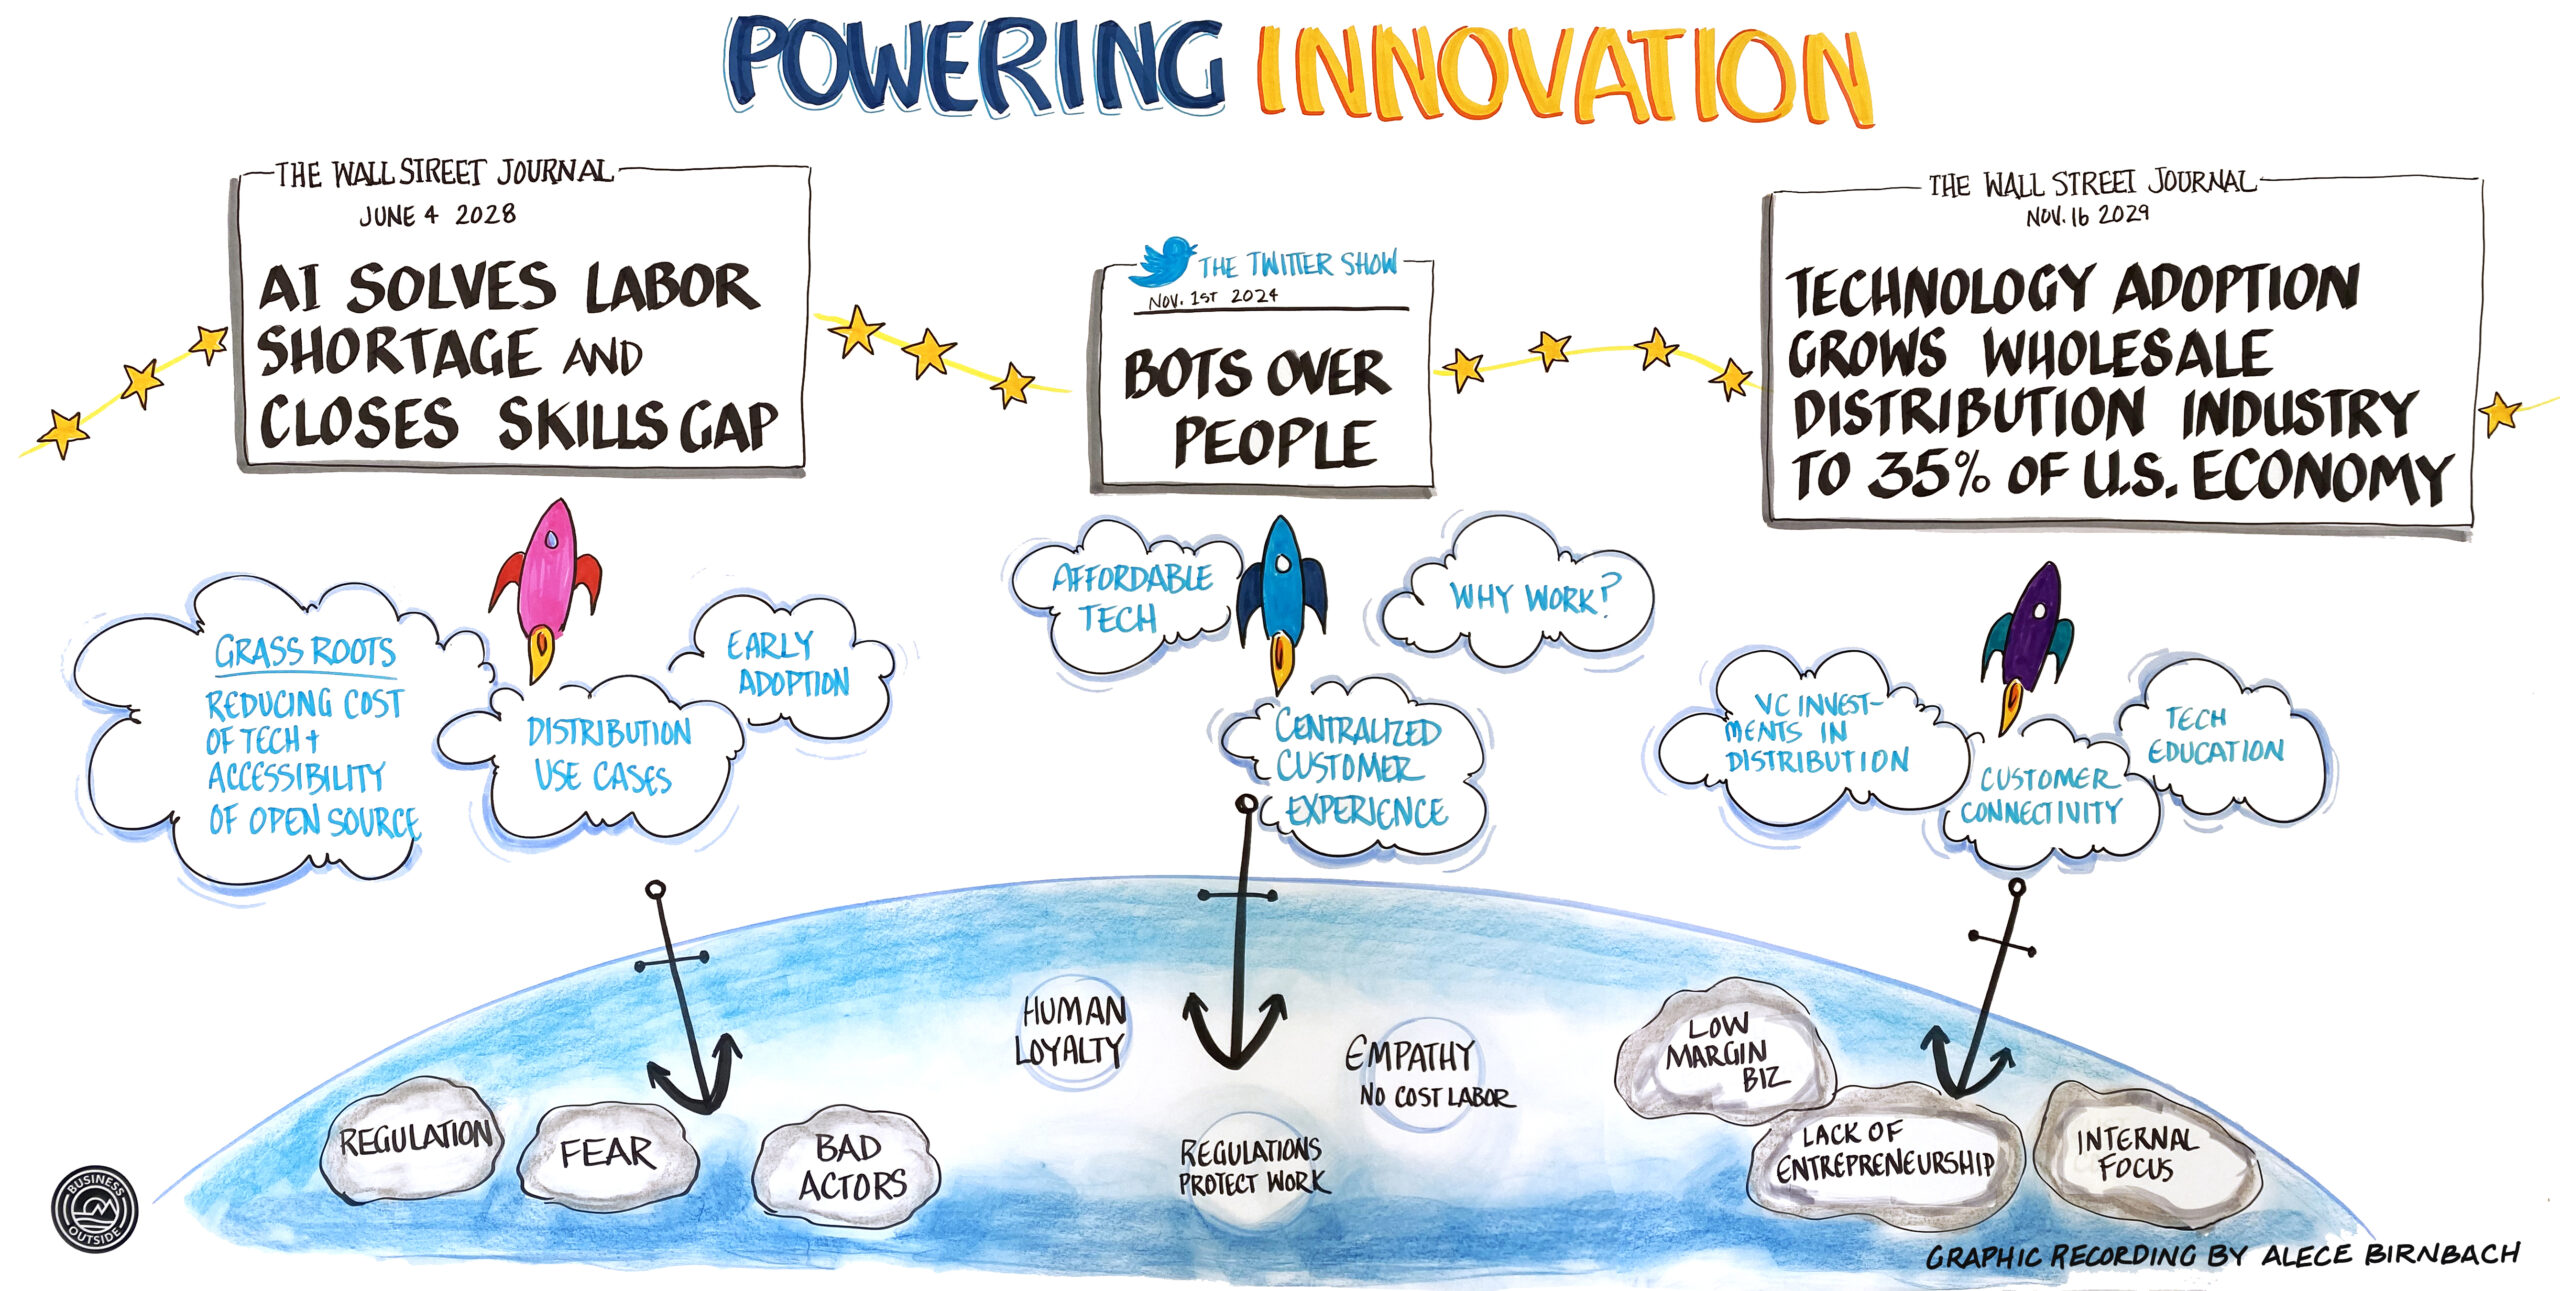 POWERING INNOVATION
THE WALL STREET JOURNAL
JUNE 4 2028
AI SOLVES LABOR
SHORTAGE AND
CLOSES SKILLS GAP
THE TWITTER SHOW
NOV. 1ST 2024
BOTS OVER
PEOPLE
THE WALL STREET JOURNAL
NOV. 16 2029
TECHNOLOGY ADOPTION
GROWS WHOLESALE
DISTRIBUTION INDUSTRY
TO 35% OF U.S. ECONOMY
GRASS ROOTS
REDUCING COST
OF TECH +
ACCESSIBILITY
OF OPEN SOURCE
DISTRIBUTION
USE CASES
EARLY
ADOPTION
AFFORDABLE
TECH
WHY WORK?
CENTRALIZED
CUSTOMER
EXPERIENCE
VC INVEST-
MENTS IN
DISTRIBUTION
CUSTOMER
CONNECTIVITY
TECH
EDUCATION
REGULATION
FEAR
BAD
ACTORS
HUMAN
LOYALTY
REGULATIONS
PROTECT WORK
EMPATHY
NO COST LABOR
LOW
MARGIN
BIZ
LACK OF
ENTREPRENEURSHIP
INTERNAL
FOCUS
BUSINESS
OUTSIDE
GRAPHIC RECORDING BY ALECE BIRNBACH